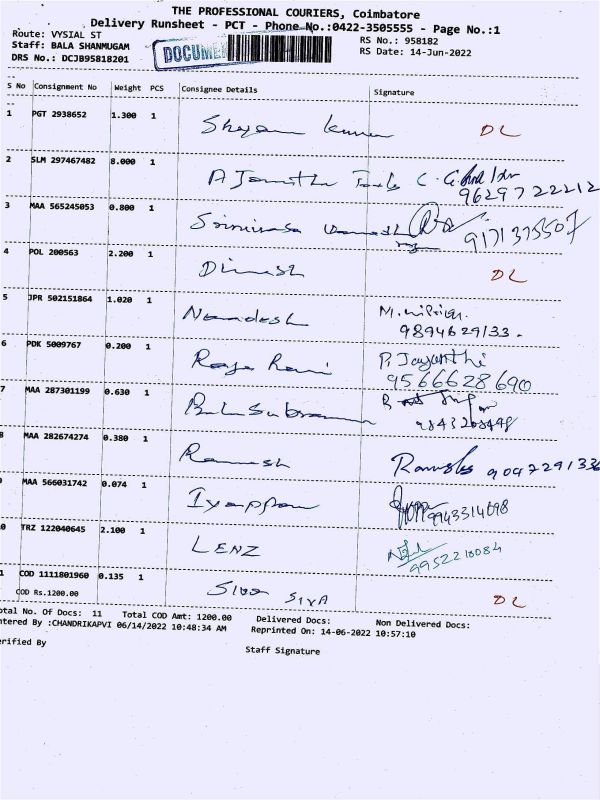 THE PROFESSIONAL COURIERS, Coimbatore
Delivery Runsheet - PCT - Phone No.:0422-3505555 - Page No.:1
Route: VYSIAL ST
RS No.: 958182
Staff: BALA SHANMUGAM
RS Date: 14-Jun-2022
DRS No.: DCJB95818201
DOCUMEN
S No Consignment No Weight PCS Consignee Details Signature
1 PGT 2938652 1.300 1 Shyam Kumar DL
2 SLM 297467482 8.000 1 A Jamitha
9629722212
3 MAA 565245053 0.800 1 Srinivasa
9171375507
4 POL 200563 2.200 1 Dinesh DL
5 JPR 502151864 1.020 1 Nandesh
9894629133.
6 PDK 5009767 0.200 1 Raja Rani P. Jayanthi
9566628690
7 MAA 287301199 0.630 1 BalaSubraman
8 MAA 282674274 0.380 1 Ramesh Ramesh 9097291336
MAA 566031742 0.074 1 Iyappan 9943314698
0 TRZ 122040645 2.100 1 LENZ
9952218084
1 COD 1111801960 0.135 1 Siva SIVA DL
COD Rs.1200.00
otal No. Of Docs: 11 Total COD Amt: 1200.00 Delivered Docs: Non Delivered Docs:
ntered By :CHANDRIKAPVI 06/14/2022 10:48:34 AM Reprinted On: 14-06-2022 10:57:10
erified By
Staff Signature